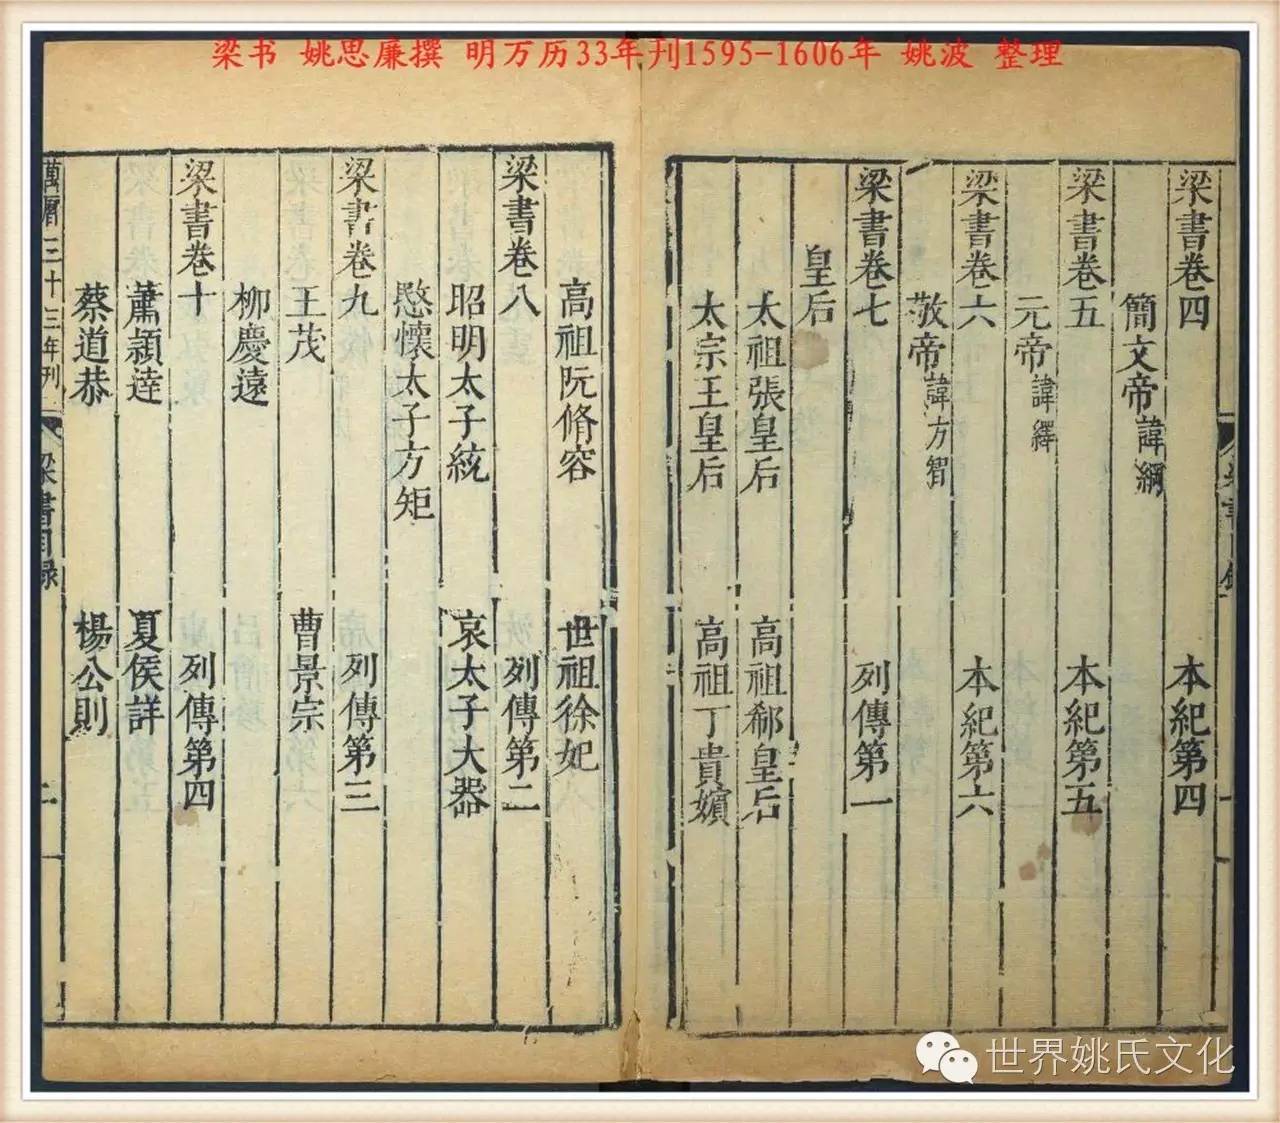 梁书 姚思廉撰 明万历33年刊1595-1606年 姚波 整理
梁書卷四 本紀第四
簡文帝諱綱
梁書卷五 本紀第五
元帝諱繹
梁書卷六 本紀第六
敬帝諱方智
梁書卷七 列傳第一
皇后
太祖張皇后 高祖郗皇后
太宗王皇后 高祖丁貴嬪
高祖阮脩容 世祖徐妃
梁書卷八 列傳第二
昭明太子統 哀太子大器
愍懷太子方矩
梁書卷九 列傳第三
王茂 曹景宗
柳慶遠
梁書卷十 列傳第四
蕭頴達 夏侯詳
蔡道恭 楊公則
萬曆三十三年刊 梁書目録 二
世界姚氏文化